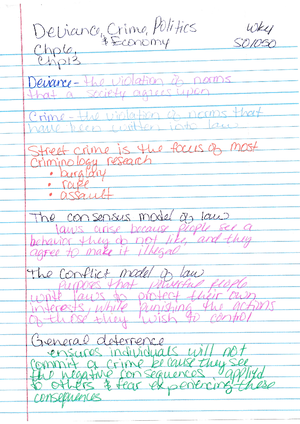 Deviance, Crime, Politics
& Economy
Wk4
SO1050
Chp6,
Chp13
Deviance - the violation of norms
that a society agrees upon
Crime - the violation of norms that
have been written into law
Street crime is the focus of most
Criminology research
• burglary
• rape
• assault
The consensus model of law
laws arise because people see a
behavior they do not like, and they
agree to make it illegal
The conflict model of law
Purposes that powerful people
write laws to protect their own
interests, while punishing the actions
of those they wish to control
General deterrence
ensures individuals will not
commit a crime because they see
the negative consequences applied
to others & fear experiencing these
consequences